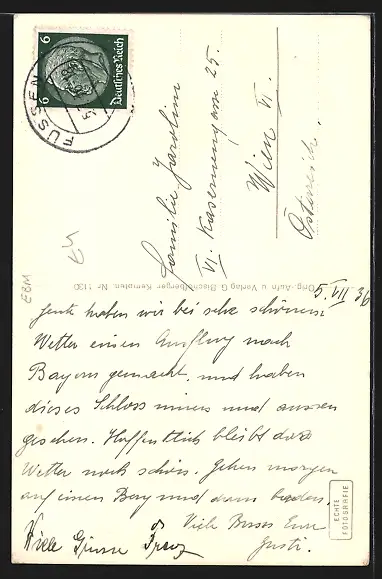 Deutsches Reich
6 6
FÜSSEN
Familie Jarolim
VI. Kasernengasse 25.
Wien VI.
Österreich.
Orig.-Aufn. u. Verlag G. Kempten. Nr. 1130
5. VII 36
Heute haben wir bei sehr schönem
Wetter einen Ausflug nach
Bayern gemacht, und haben
dieses Schloss innen und aussen
gesehen. Hoffentlich bleibt das
Wetter noch schön. Gehen morgen
auf einen Berg und dann baden.
Viele Bussi Eure
Gusti.
Viele Grüsse Franz
ECHTE
FOTOGRAFIE
EBM